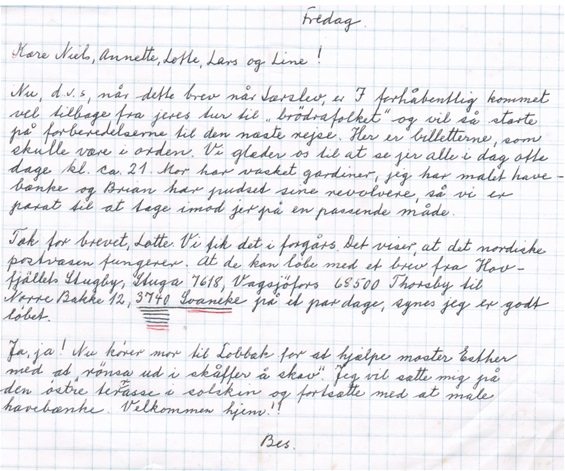 Fredag.
Kære Niels, Annette, Lotte, Lars og Line!
Nu, d.v.s., når dette brev når Særslev, er I forhåbentlig kommet
vel tilbage fra jeres tur til "brödrafolket" og vil så starte
på forberedelserne til den næste rejse. Her er billetterne, som
skulle være i orden. Vi glæder os til at se jer alle i dag otte
dage kl. ca. 21. Mor har vasket gardiner, jeg har malet have-
bænke og Brian har pudset sine revolvere, så vi er
parat til at tage imod jer på en passende måde.
Tak for brevet, Lotte. Vi fik det i forgårs. Det viser, at det nordiske
postvæsen fungerer. At de kan løbe med et brev fra Hov-
fjället Stugby, Stuga 7618, Vägsjöfors 68500 Thorsby til
Nørre Bakke 12, 3740 Svaneke på et par dage, synes jeg er godt
løbet.
Ja, ja! Nu kører mor til Lobbæk for at hjælpe moster Esther
med at "rönsa ud i skåffer å skav". Jeg vil sætte mig på
den østre terasse i solskin og fortsætte med at male
havebænke. Velkommen hjem!!
Bes.